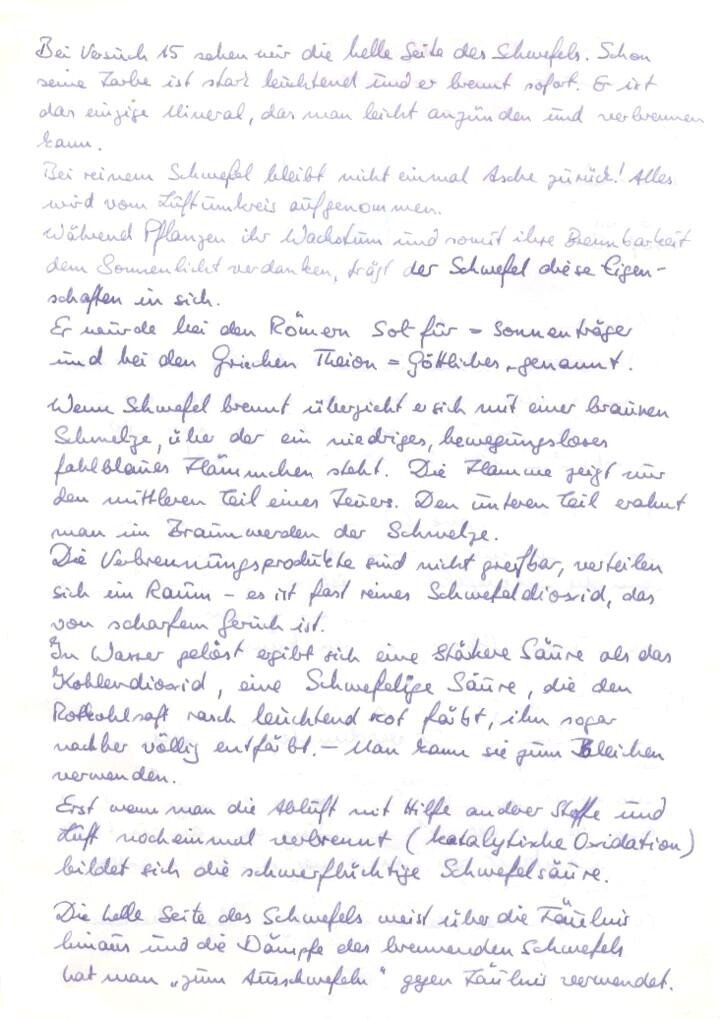 Bei Versuch 15 sehen wir die helle Seite des Schwefels. Schon
seine Farbe ist stark leuchtend und er brennt sofort. Er ist
das einzige Mineral, das man leicht anzünden und verbrennen
kann.
Bei reinem Schwefel bleibt nicht einmal Asche zurück! Alles
wird vom Luftumkreis aufgenommen.
Während Pflanzen ihr Wachstum und somit ihre Brennbarkeit
dem Sonnenlicht verdanken, trägt der Schwefel diese Eigen-
schaften in sich.
Er wurde bei den Römern Sol für = Sonnenträger
und bei den Griechen Theion = Göttliches, genannt.
Wenn Schwefel brennt überzieht er sich mit einer braunen
Schmelze, über der ein niedriges, bewegungsloses
fahlblaues Flämmchen steht. Die Flamme zeigt nur
den mittleren Teil eines Feuers. Den unteren Teil erahnt
man im Braunwerden der Schmelze.
Die Verbrennungsprodukte sind nicht greifbar, verteilen
sich im Raum – es ist fast reines Schwefeldioxid, das
von scharfem Geruch ist.
In Wasser gelöst ergibt sich eine stärkere Säure als das
Kohlendioxid, eine Schwefelige Säure, die den
Rotkohlsaft rasch leuchtend rot färbt, ihn sogar
nachher völlig entfärbt. – Man kann sie zum Bleichen
verwenden.
Erst wenn man die Abluft mit Hilfe anderer Stoffe und
Luft nocheinmal verbrennt (katalytische Oxidation)
bildet sich die schwerflüchtige Schwefelsäure.
Die helle Seite des Schwefels weist über die Fäulnis
hinaus und die Dämpfe des brennenden Schwefels
hat man „zum Ausschwefeln" gegen Fäulnis verwendet.